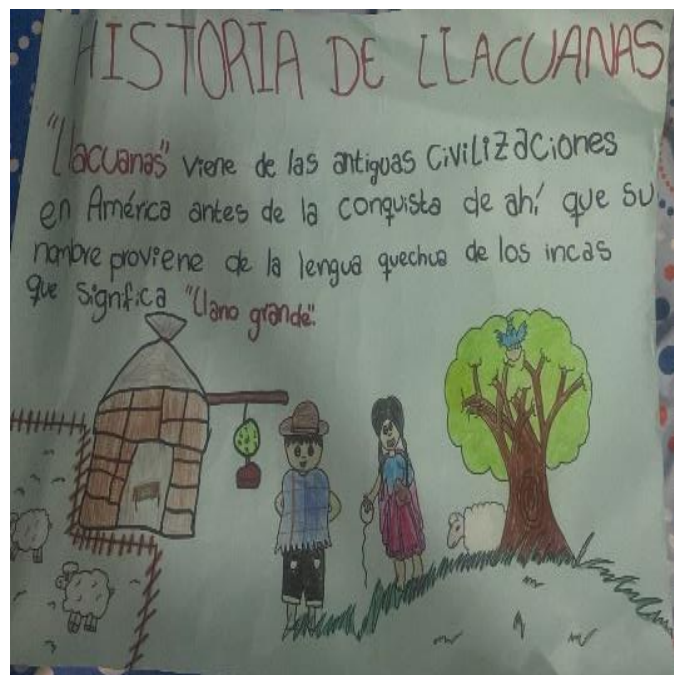 HISTORIA DE LLACUANAS
"Llacuanas" viene de las antiguas Civilizaciones
en América antes de la conquista de ahí que su
nombre proviene de la lengua quechua de los incas
que significa "Llano grande".